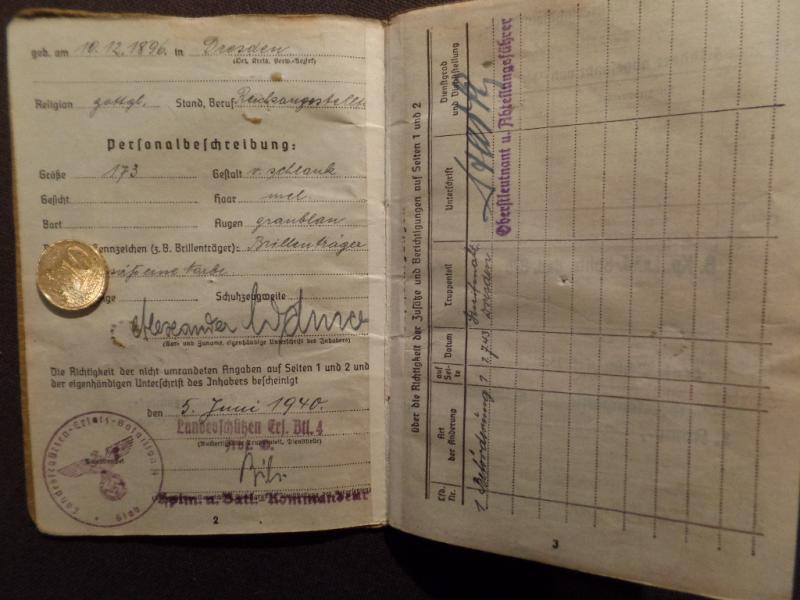 geb. am 10.12.1896. in Dresden
(Ort, Kreis, Verw.-Bezirk)
Religion gottgl. Stand, Beruf
Personalbeschreibung:
Größe 173 Gestalt v. schlank
Gesicht Haar mel
Bart Augen graublau
Kennzeichen (z. B. Brillenträger): Brillenträger
Narbe
Schuhzeugweite
Alexander
(Vor- und Zuname, eigenhändige Unterschrift des Inhabers)
Die Richtigkeit der nicht umrandeten Angaben auf Seiten 1 und 2 und
der eigenhändigen Unterschrift des Inhabers bescheinigt
den 5. Juni 1940.
Landesschützen Ers. Btl. 4
Hptm. u. Batl.-Kommandeur
Landesschützen-Ersatz-Bataillon 4
2
über die Richtigkeit der Zusätze und Berichtigungen auf Seiten 1 und 2
Lfd. Nr.
Art der Änderung
auf Seite
Datum
Truppenteil
Unterschrift
Dienstgrad und Dienststellung
1 Beförderung 1. 1.7.43 Dresden
Oberstleutnant u. Abteilungsführer
3